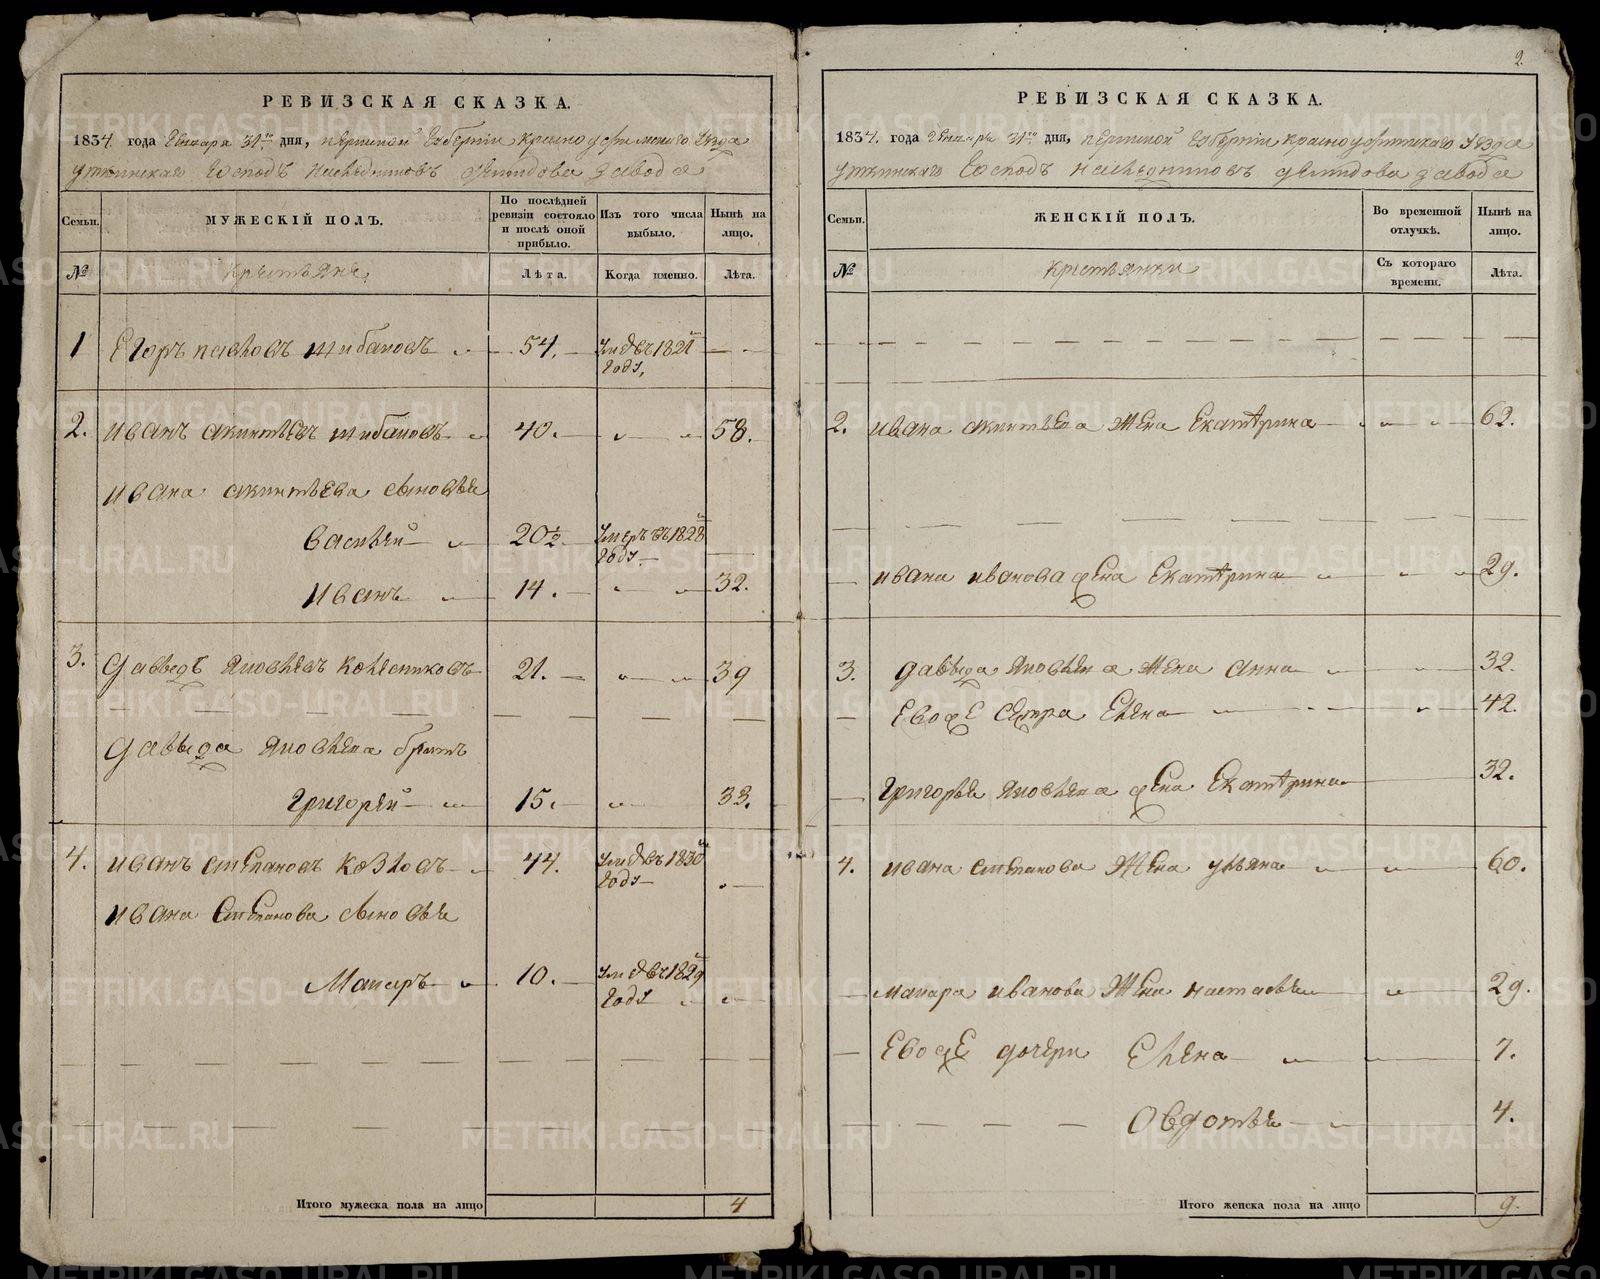 РЕВИЗСКАЯ СКАЗКА.
1834. года Генваря 31го дня, пермской Губернiи красноуфимскаго Уезда
уткинскаго Господъ наследниковъ демидова завода
Семьи. МУЖЕСКIЙ ПОЛЪ. По послѣдней ревизiи состояло и послѣ оной прибыло. Изъ того числа выбыло. Нынѣ на лицо.
№ крестьяне Лѣта. Когда именно. Лѣта.
1 Егоръ павловъ шибановъ 54. Умре въ 1821м
году,
2. иванъ акинтьевъ шибановъ 40. 58.
ивана акинтьева сыновья
василей 20½ умеръ въ 1828м
году
иванъ 14. 32.
3. давыдъ яковлевъ колесниковъ 21. 39
давыда яковлева братъ
григорей 15. 33.
4. иванъ степановъ козловъ 44. Умре въ 1830м
году
ивана степанова сыновья
Макаръ 10. Умре въ 1829м
году
Итого мужеска пола на лицо 4
2.
РЕВИЗСКАЯ СКАЗКА.
1834. года Генваря 31го дня, пермской Губернiи красноуфимскаго Уезда
уткинскаго Господъ наследниковъ демидова завода
Семьи. ЖЕНСКIЙ ПОЛЪ. Во временной отлучкѣ. Нынѣ на лицо.
№ крестьянки Съ котораго времени. Лѣта.
2. ивана акинтьева жена Екатерина 62.
ивана иванова жена Екатерина 29.
3. давыда яковлева жена анна 32.
Евоже сестра Елена 42.
григорья яковлева жена Екатерина 32.
4. ивана степанова жена ульяна 60.
макара иванова жена настасья 29.
Евоже дочери Елена 7.
Овдотья 4.
Итого женска пола на лицо 9.
METRIKI.GASO-URAL.RU